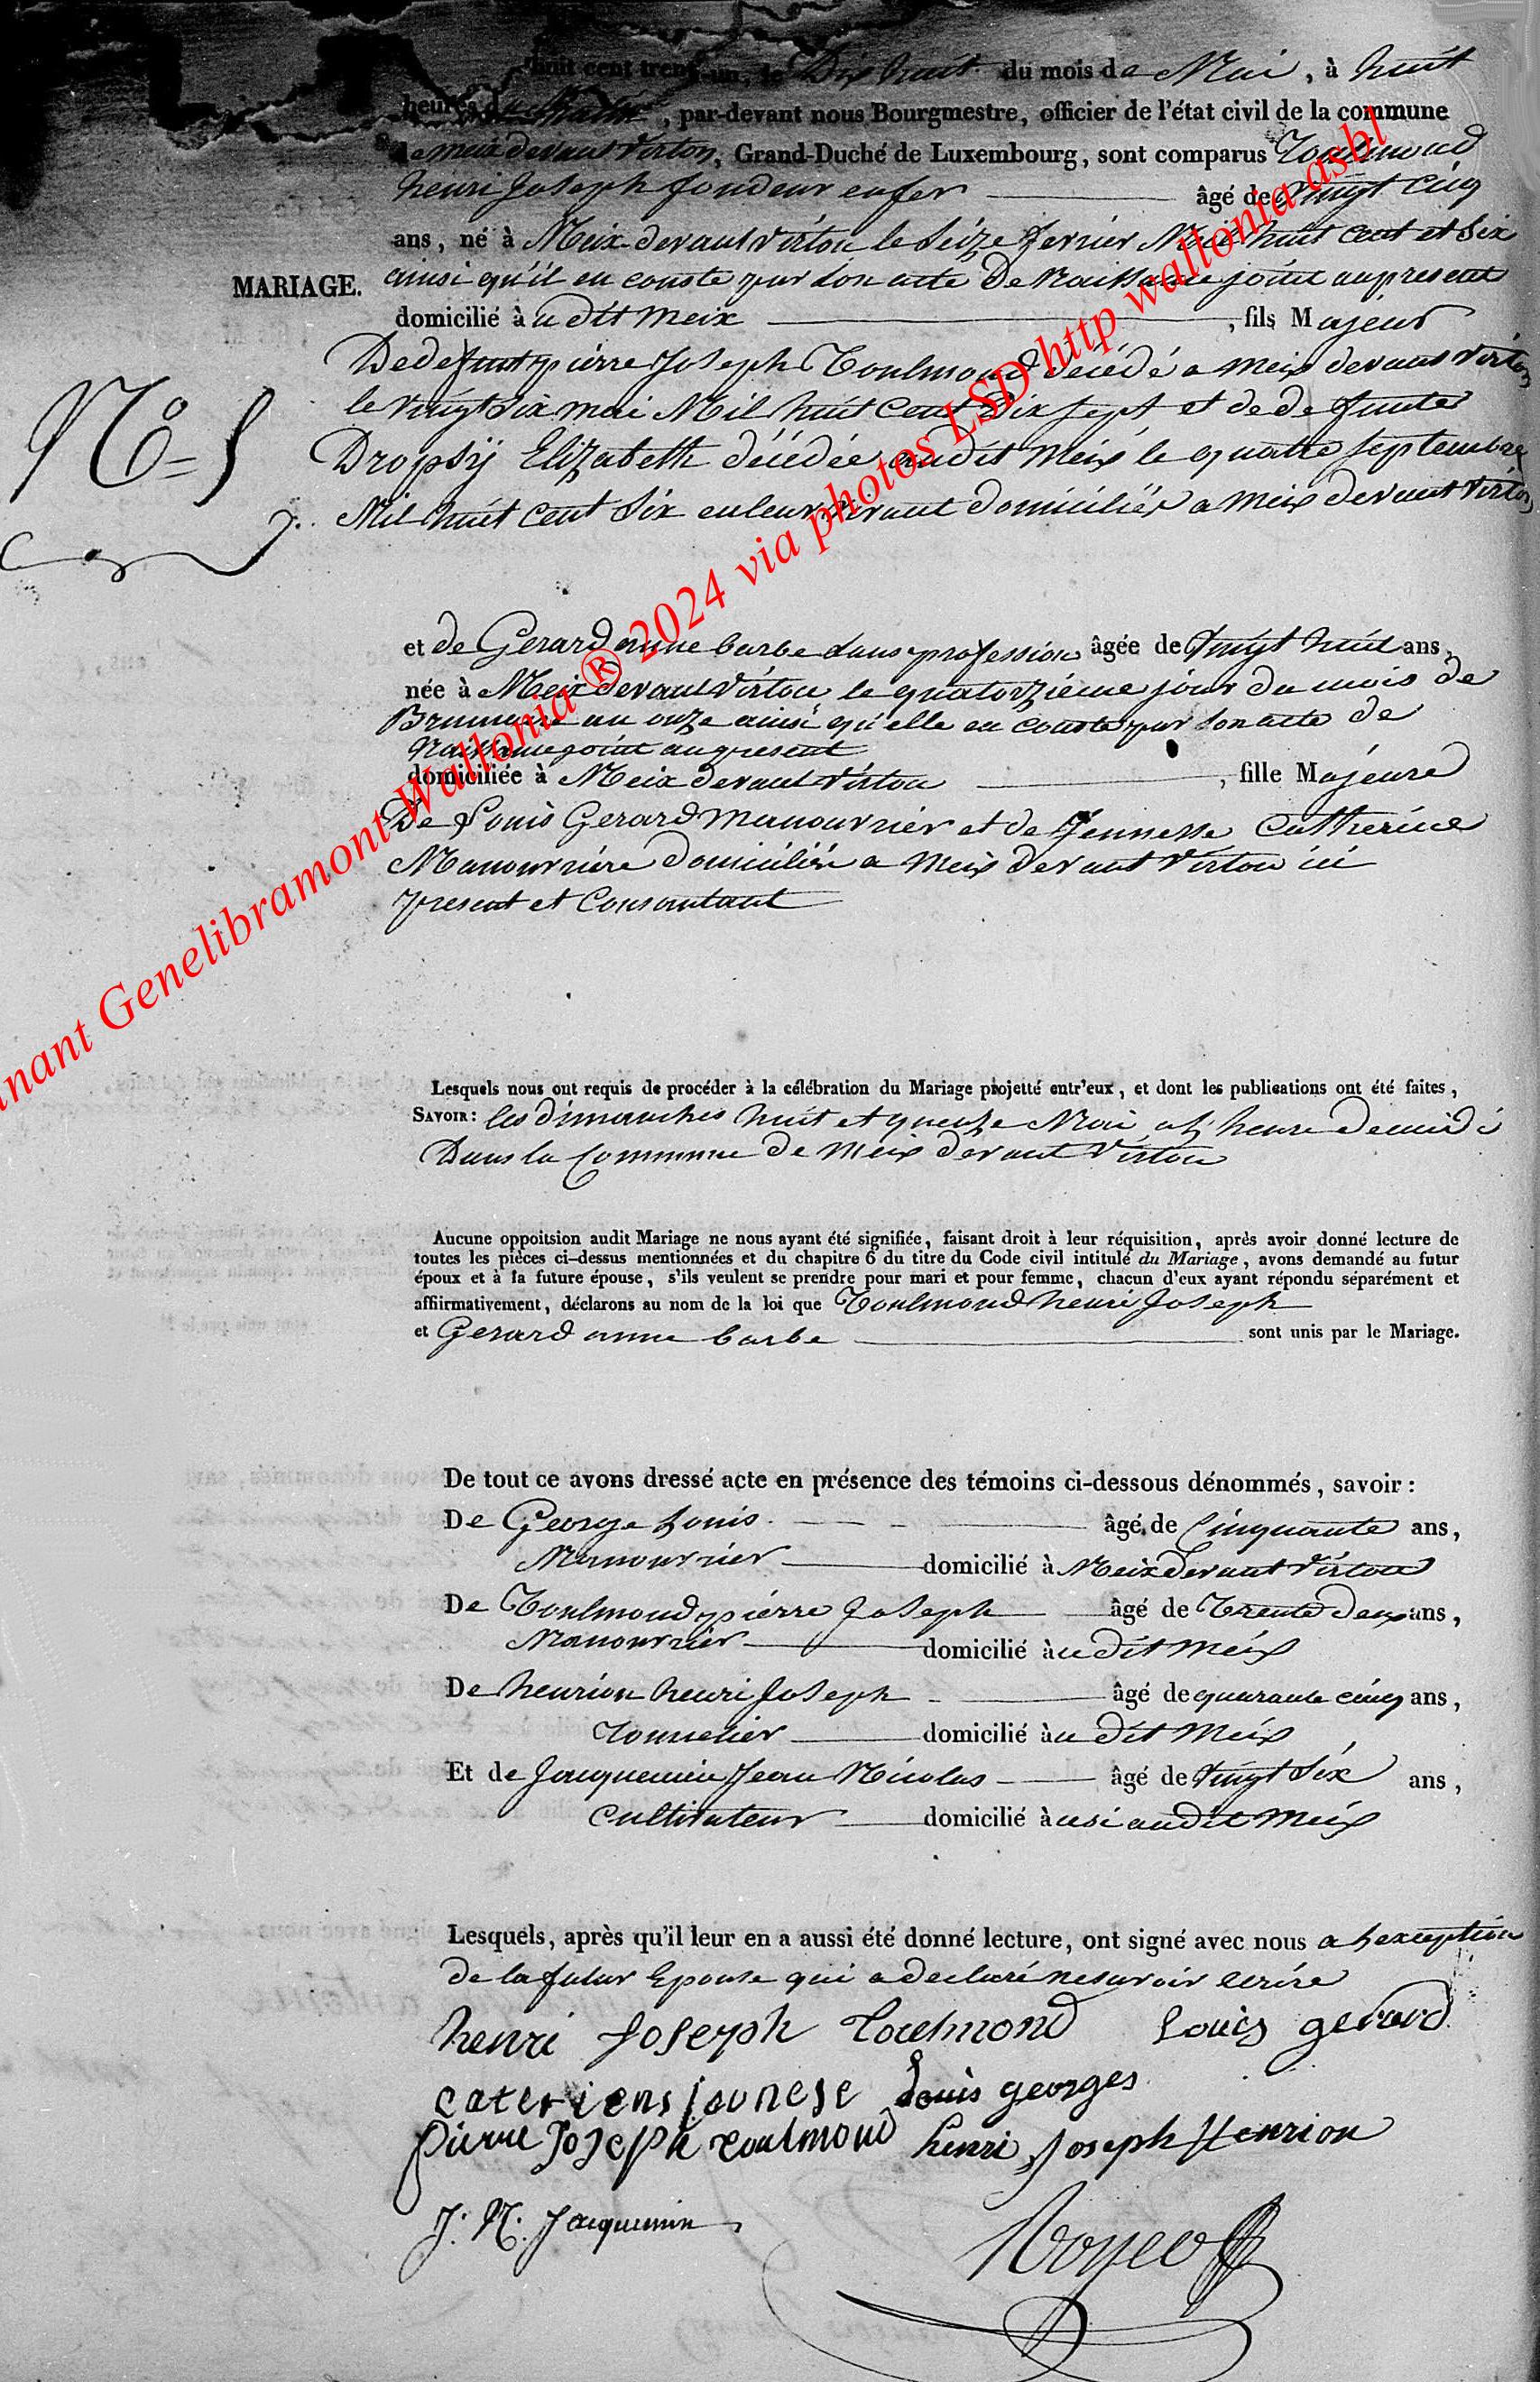 huit cent trente-un, le Dix huit du mois de Mai, à huit
heures du Matin, par-devant nous Bourgmestre, officier de l'état civil de la commune
de meix devant Virton, Grand-Duché de Luxembourg, sont comparus Toulmond
henri Joseph fondeur en fer âgé de vingt cinq
ans, né à Meix devant Virton le Seize fevrier Mil huit cent et Six
ainsi qu'il en conste par son acte De Naissance joint au present
MARIAGE.
domicilié à udit Meix, fils Majeur
De defunt pierre Joseph Toulmond décédé a Meix devant Virton
le vingt Six mai Mil huit Cent Dix sept et de defunte
N° 5
Dropsÿ Elizabeth décédée audit Meix le quatre Septembre
Mil huit cent Six en leur vivant domiciliés a Meix devant Virton
et de Gerard anne barbe sans profession âgée de Vingt huit ans,
née à Meix devant Virton le quatorzième jour du mois de
Brumaire an onze ainsi qu'elle en conste par son acte de
Naissance joint au present
domiciliée à Meix devant Virton, fille Majeure
De Louis Gerard Manouvrier et de Jennesse Catherine
Manouvrière domiciliés a Meix devant Virton ici
present et Consantant
Lesquels nous ont requis de procéder à la célébration du Mariage projetté entr'eux, et dont les publications ont été faites,
SAVOIR: les dimanches huit et quenze Mai a l'heure de midi
Dans la Commune de Meix devant Virton
Aucune oppoitsion audit Mariage ne nous ayant été signifiée, faisant droit à leur réquisition, après avoir donné lecture de
toutes les pièces ci-dessus mentionnées et du chapitre 6 du titre du Code civil intitulé du Mariage, avons demandé au futur
époux et à la future épouse, s'ils veulent se prendre pour mari et pour femme, chacun d'eux ayant répondu séparément et
affirmativement, déclarons au nom de la loi que Toulmond henri Joseph
et Gerard anne barbe sont unis par le Mariage.
De tout ce avons dressé acte en présence des témoins ci-dessous dénommés, savoir:
De George Louis âgé de Cinquante ans,
Manouvrier domicilié à Meix devant Virton
De Toulmond pierre Joseph âgé de Trente Deux ans,
Manouvrier domicilié à udit Meix
De henrion henri Joseph âgé de quarante cinq ans,
Tonnelier domicilié à udit Meix
Et de Jacquemin Jean Nicolas âgé de Vingt Six ans,
Cultivateur domicilié à usi audit Meix
Lesquels, après qu'il leur en a aussi été donné lecture, ont signé avec nous a l'exception
de la futur Epouse qui a declaré ne savoir ecrire
henri Joseph Toulmond Louis gerard
cateriens jeunese Louis georges
pierre Joseph toulmond henri Joseph Henrion
J. N. Jacquemin
nant Genelibramont Wallonia ® 2024 via photos LSD http wallonia asbl